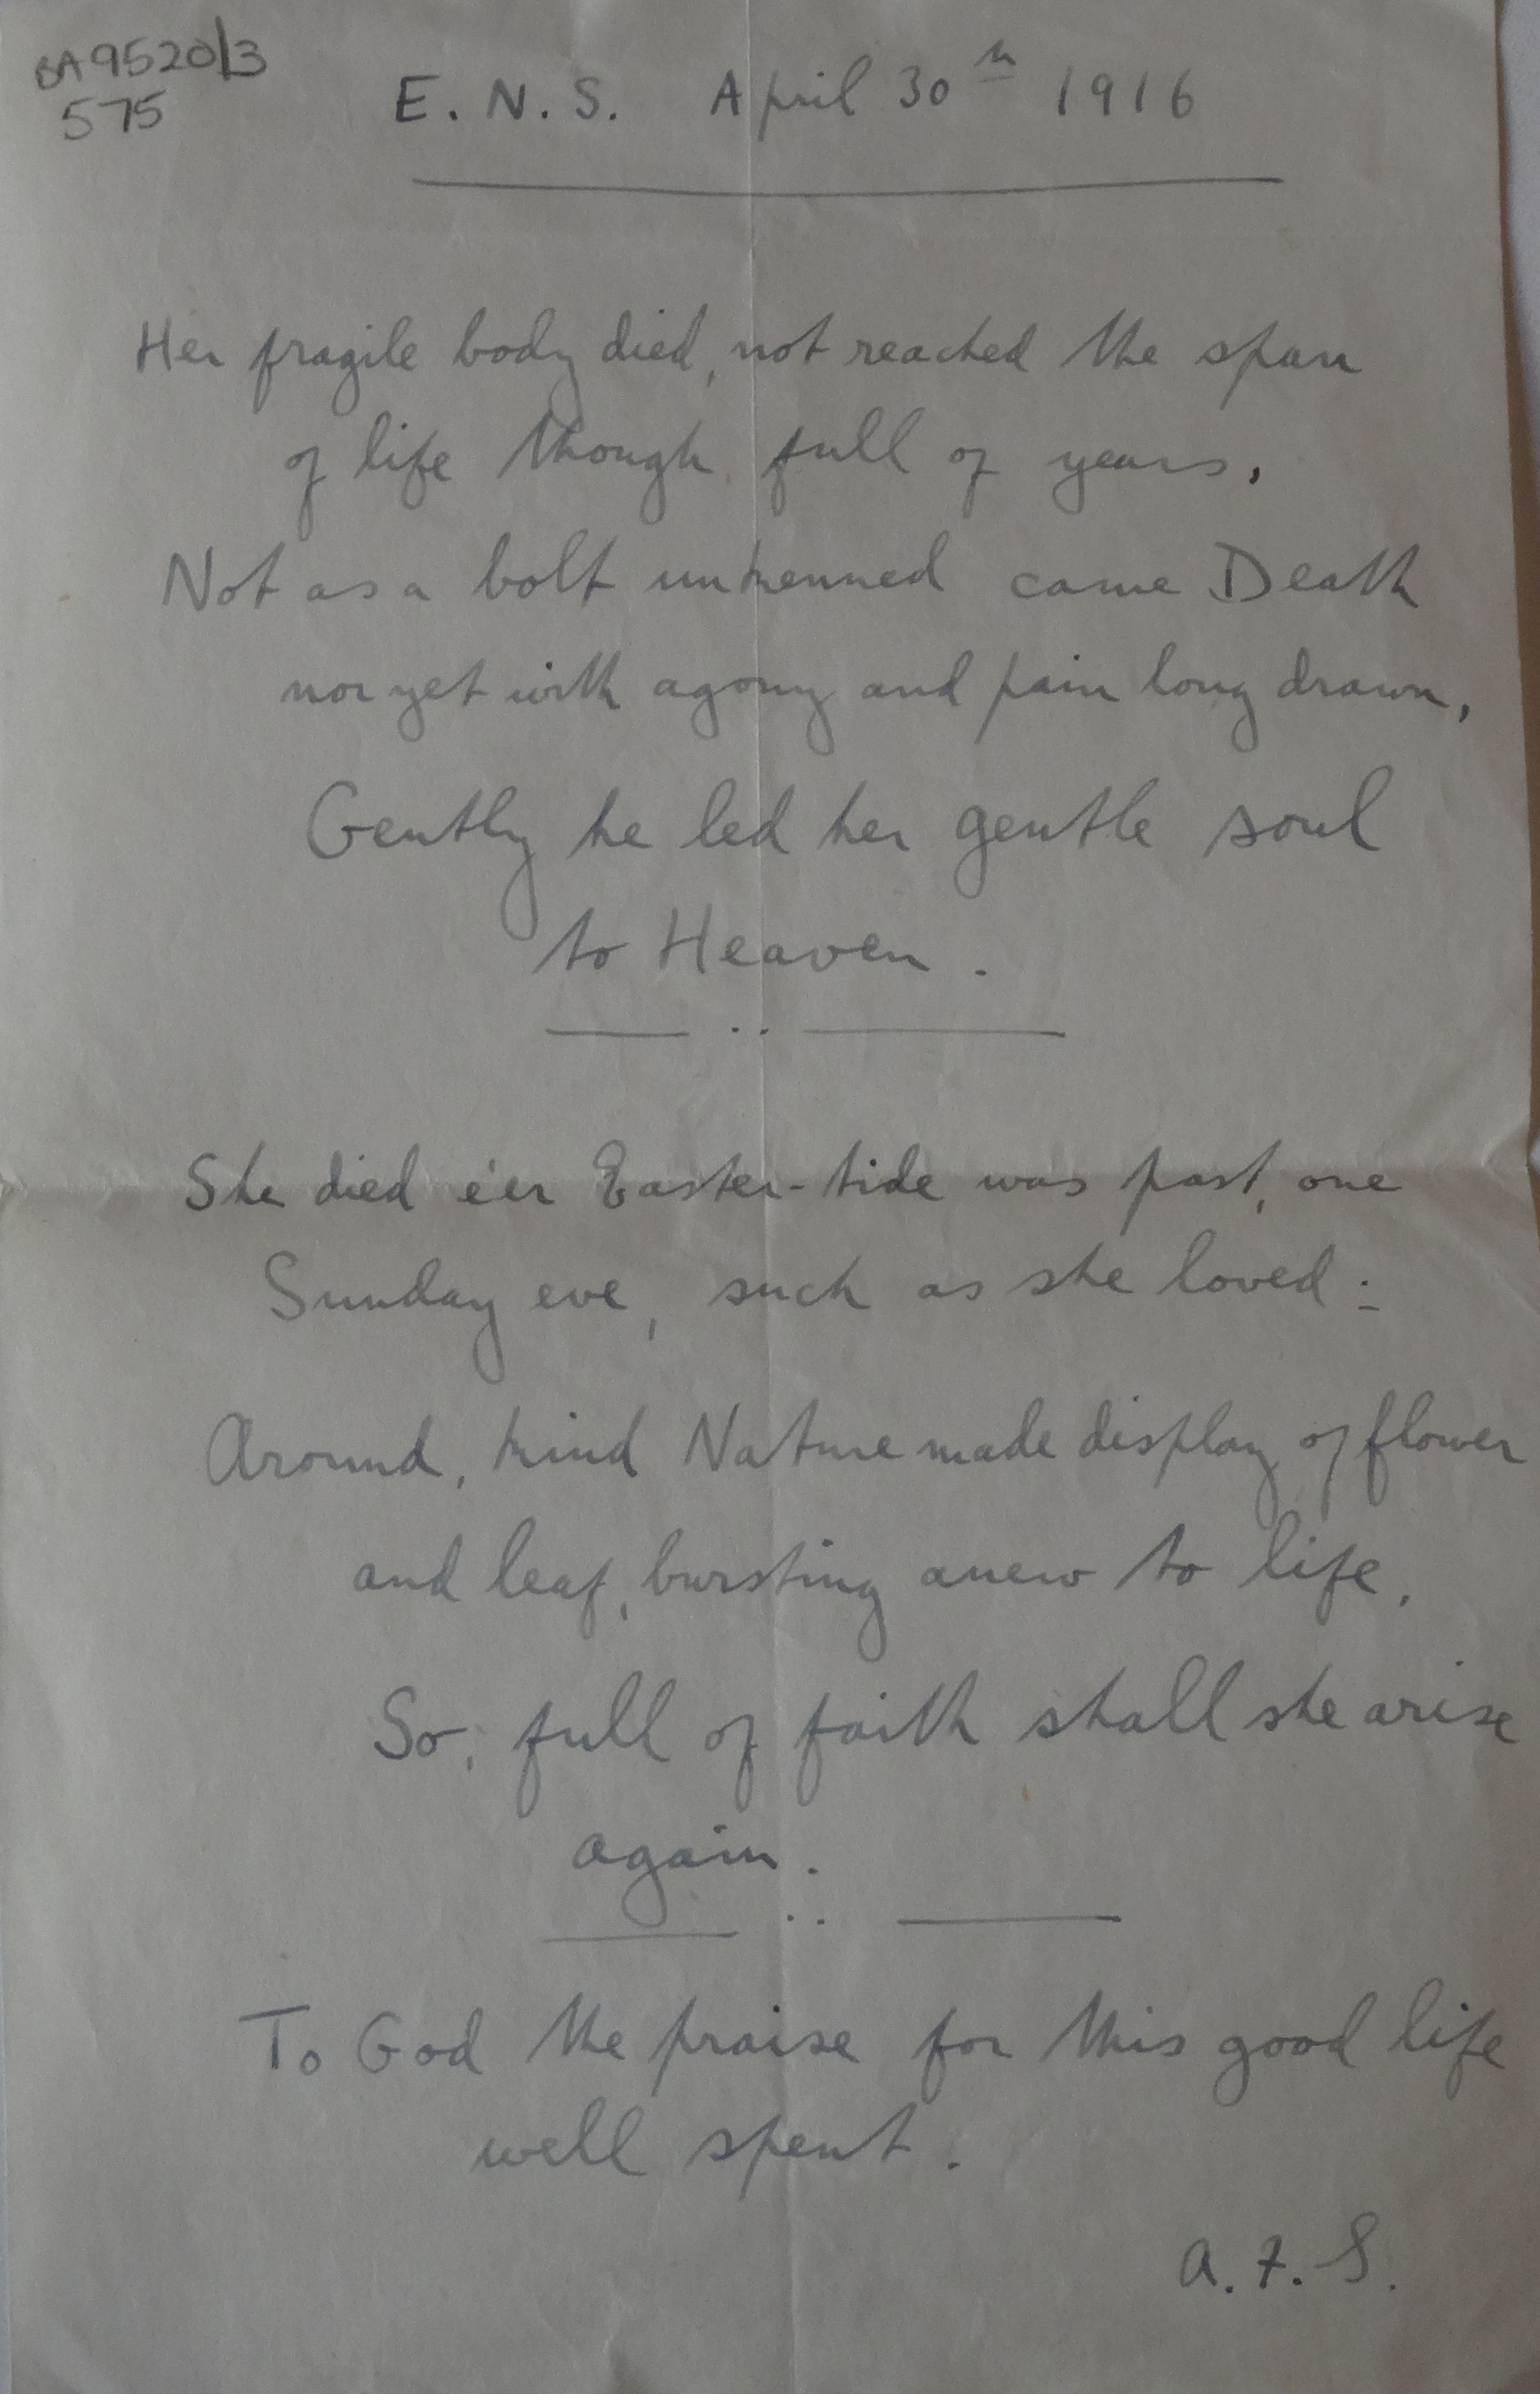 BA9520/3
575
E. N. S. April 30th 1916
Her fragile body died, not reached the span
of life though full of years,
Not as a bolt unkenned came Death
nor yet with agony and pain long drawn,
Gently he led her gentle soul
to Heaven.
She died e'er Easter-tide was past, one
Sunday eve, such as she loved :
Around, kind Nature made display of flower
and leaf, bursting anew to life.
So, full of faith shall she arise
again.
To God the praise for this good life
well spent.
A. F. S.